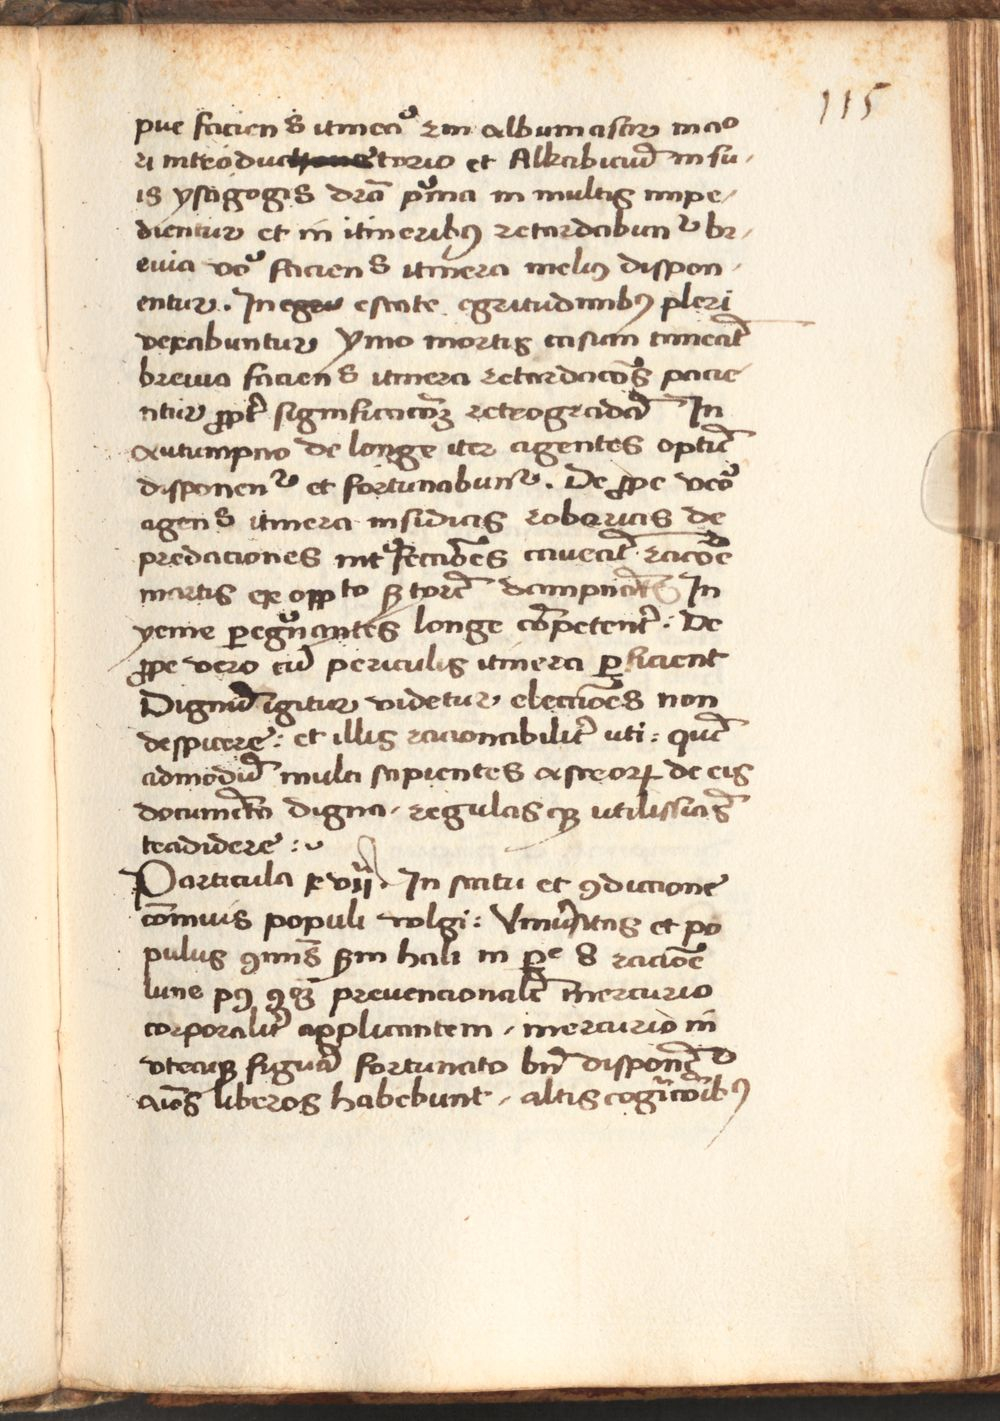 115
pue facien̄s itinera ꝛm albumasor maio
ri introductorio et Alkabiciū in su-
is ysagogis dr̄a pͥma in multis impe-
dientur et in itineribꝰ retardabunᷣ br-
euia vͦo facien̄s itinera meliꝰ dispon-
entur. In estate egritudinibꝰ pleri
vexabuntur ymo mortis casum timeāt
breuia facien̄s itinera retardacōs̄ pacie
ntur ꝓpt̄ significacōꝫ retrogradā In
autumpno de longe iter agentes optīe
disponenᷣ et fortunabunᷣ. De ꝓpe vͦo
agen̄s itinera insidias robarias de
predaciones intͬfecciōes caueāt racōe
martis ex opp̄to dampnātes In
yeme ꝑegͥnantes longe cōpetent̄: De
ꝓpe vero cū periculis itinera ꝑficient
Dignū igitur videtur elecciōes non
despicere: et illis racionabilit̄ uti: quē
admodū multi sapientes astroꝝ de eis
documēto digna. regulas qꝫ utilissīas
tradidere:
Particula xvij. In statu et ꝯdiccione
cōmunis populi volgi: Vniuͬsitas et po
pulus ꝯmīs ẜm hali in ꝑᵉ 8 raciōe
lune pꝰ prevencionalē mercurio
corporalit̄ applicantem. mercurio in
vtraqꝫ figurā fortunato bn̄ disponēᷣ
aīos liberos habebunt. altis cogītacōibꝰ